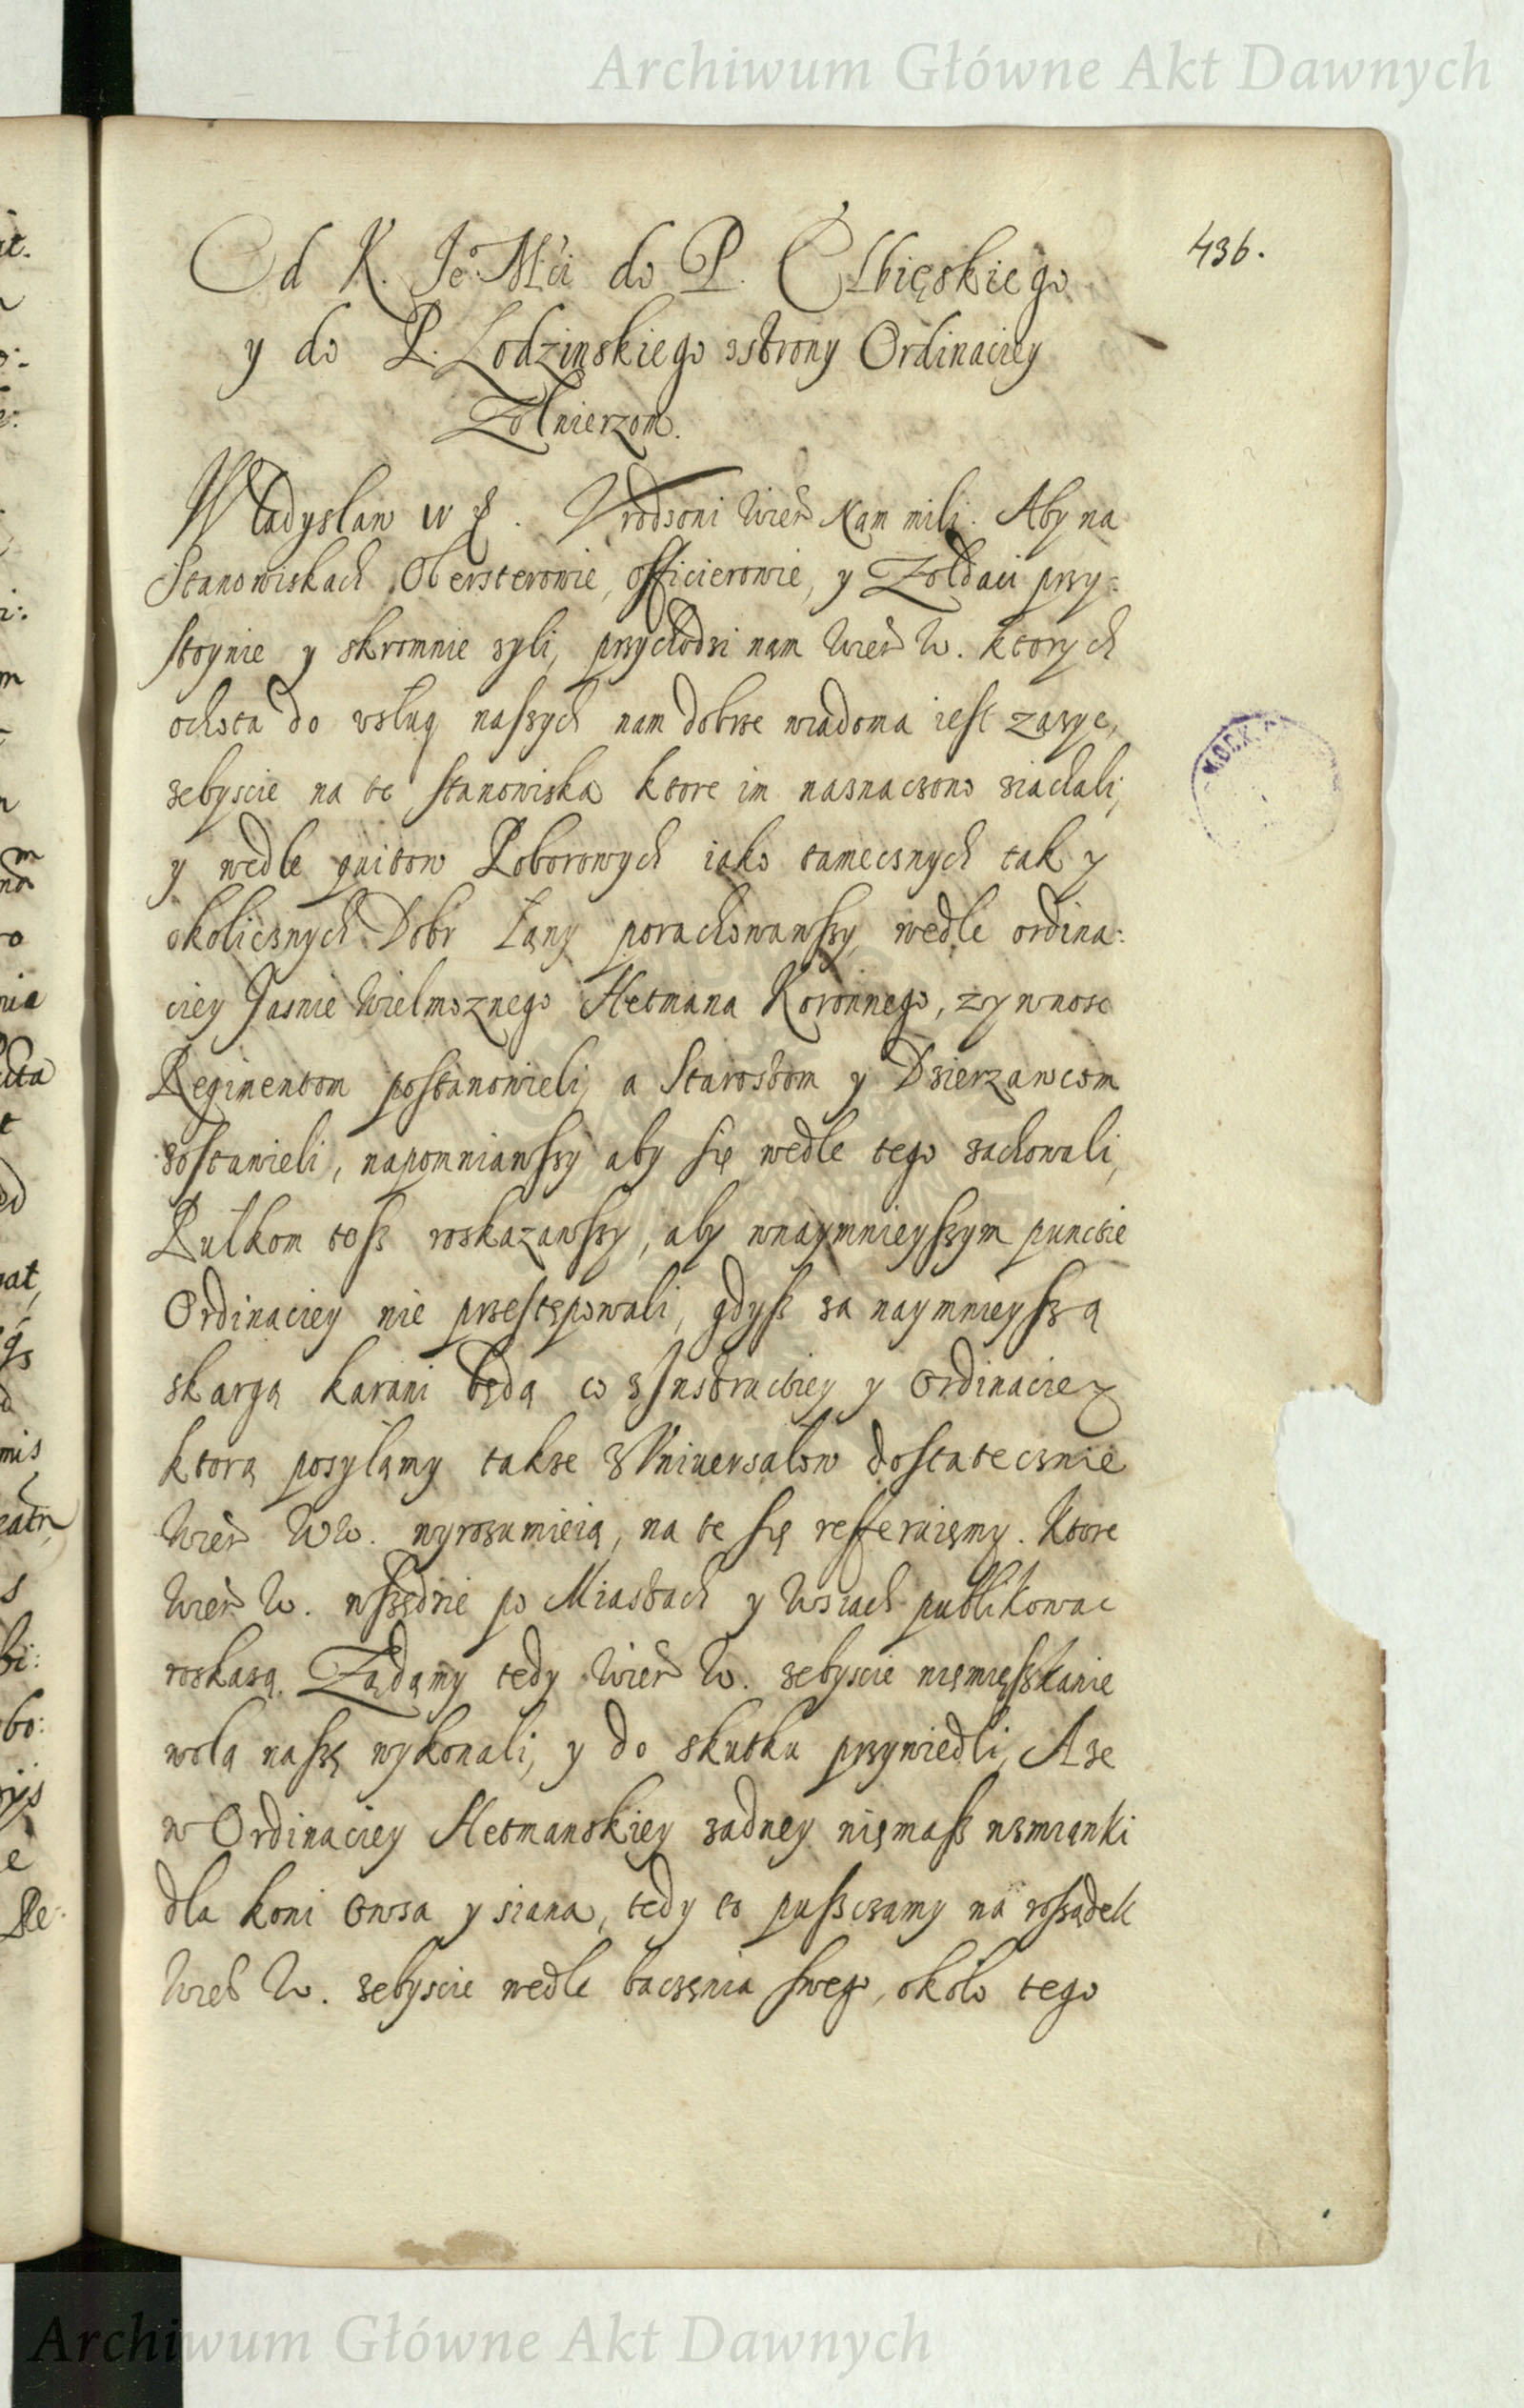 Archiwum Główne Akt Dawnych
436.
Od K. Jeº Mći do P. Elbięskiego
y do P. Lodzinskiego zstrony Ordinaciey
Zołnierzom.
Władysław IV. Vrodzoni Wier Nam mili. Aby na
Stanowiskach Obersterowie, officierowie, y Zołdaci przy:
stoynie y skromnie zyli, przychodzi nąm Wier W. ktorych
ochota do usług naszych nam dobrze wiadoma iest zązyc,
zebyscie na te stanowiska ktore im naznaczono ziachali,
y wedle quitow Poborowych iako tamecznych tak y
okolicznych Dobr Łąny porachowawszy, wedle ordina:
ciey Jasnie Wielmoznego Hetmana Koronnego, zywnosc
Regimentom postanowieli, a Starostom y Dzierzawcom
zostawieli, napomniawszy aby się wedle tego zachowali,
Pułkom tesz roskazawszy, aby wnaymnieyszym puncie
Ordinaciey nie przestępowali, gdysz za naymnieyszą
skargą karani będą co z Instructiey y Ordinaciey
ktorą posyłąmy takze z Vniuersałow dostatecznie
Wier WW. wyrozumieią, na te się refferuięmy. Ktore
Wier W. wszędzie po Miastach y Wsiach publikowac
roskazą. Ządąmy tedy Wier W. zebyscie nięmięszkanie
wolą naszę wykonali, y do skutku przywiedli, A ze
w Ordinaciey Hetmanskiey zadney nięmasz wzmiąnki
dla koni Owsa y siana, tedy to puszczamy na rozsądek
Wier W. zebyscie wedle baczęnia swego, około tego
Archiwum Główne Akt Dawnych